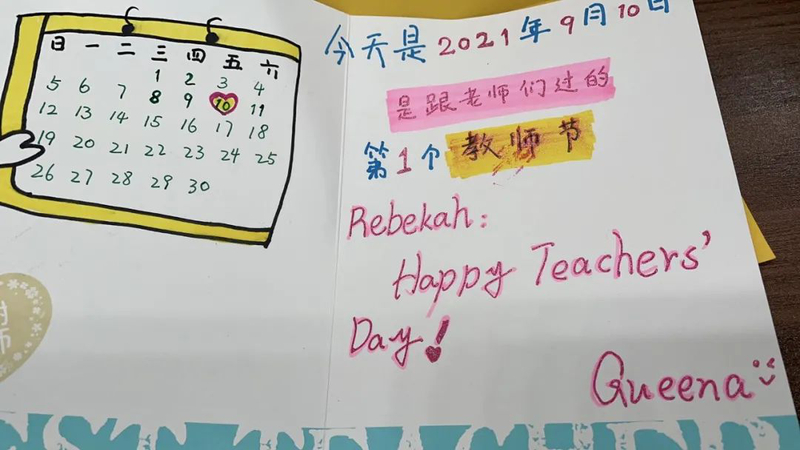 日 一 二 三 四 五 六
1 2 3 4
5 6 7 8 9 10 11
12 13 14 15 16 17 18
19 20 21 22 23 24 25
26 27 28 29 30
师
今天是2021年9月10日
是跟老师们过的
第1个教师节
Rebekah:
Happy Teachers'
Day!
Queena